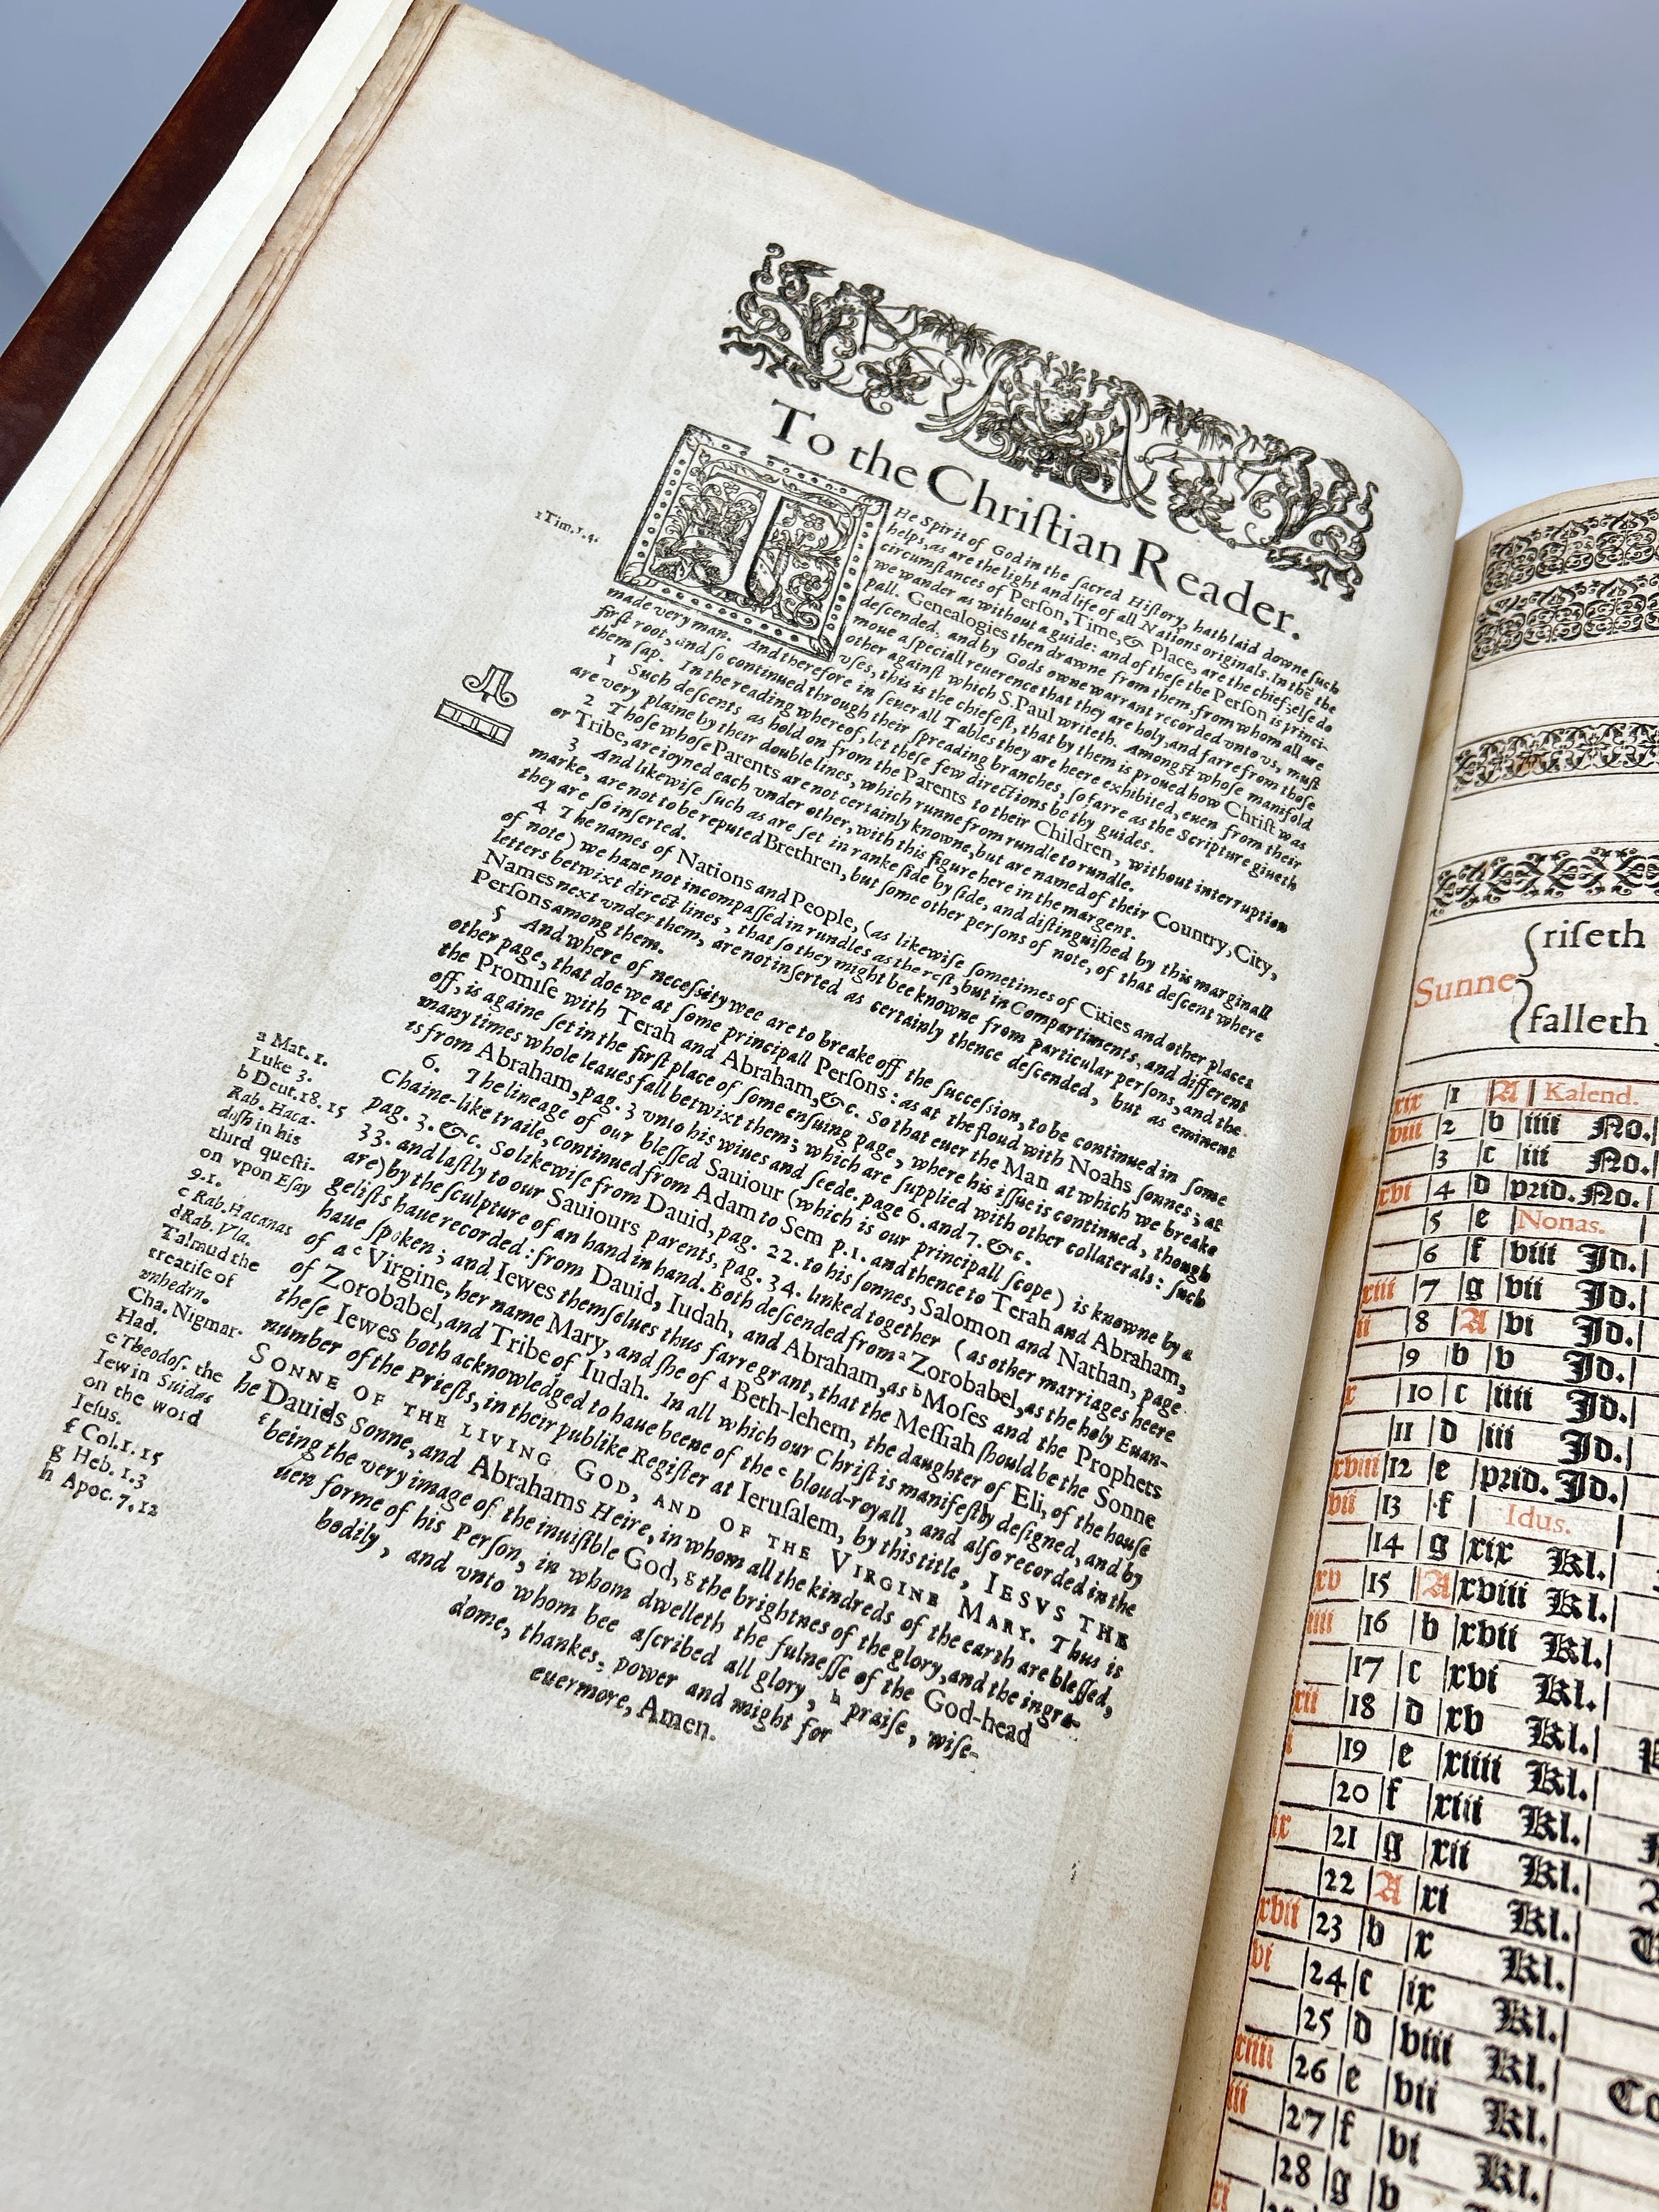 To the Christian Reader.
1 Tim. 1. 4.
THe Spirit of God in the sacred History, hath laid downe such
helps, as are the light and life of all Nations originals. In thē the
circumstances of Person, Time, & Place, are the chief; else do
we wander as without a guide: and of these the Person is princi-
pall. Genealogies then drawne from them, from whom all are
descended, and by Gods owne warrant recorded vnto vs, must
moue a speciall reuerence that they are holy, and farre from those
other against which S. Paul writeth. Amongst whose manifold
vses, this is the chiefest, that by them is proued how Christ was
made very man. And therefore in seuerall Tables they are heere exhibited, euen from their
first root, and so continued through their spreading branches, so farre as the Scripture giueth
them sap. In the reading whereof, let these few directions be thy guides.
1 Such descents as hold on from the Parents to their Children, without interruption
are very plaine by their double lines, which runne from rundle to rundle.
2 Those whose Parents are not certainly knowne, but are named of their Country, City,
or Tribe, are ioyned each vnder other, with this figure here in the margent.
3 And likewise such as are set in ranke side by side, and distinguished by this marginall
marke, are not to be reputed Brethren, but some other persons of note, of that descent where
they are so inserted.
4 The names of Nations and People, (as likewise sometimes of Cities and other places
of note) we haue not incompassed in rundles as the rest, but in Compartiments, and different
letters betwixt direct lines, that so they might bee knowne from particular persons, and the
Names next vnder them, are not inserted as certainly thence descended, but as eminent
Persons among them.
5 And where of necessity wee are to breake off the succession, to be continued in some
other page, that doe we at some principall Persons: as at the floud with Noahs sonnes; at
the Promise with Terah and Abraham, &c. So that euer the Man at which we breake
off, is againe set in the first place of some ensuing page, where his issue is continued, though
many times whole leaues fall betwixt them; which are supplied with other collaterals: such
is from Abraham, pag. 3 vnto his wiues and seede. page 6. and 7. &c.
6. The lineage of our blessed Sauiour (which is our principall scope) is knowne by a
Chaine-like traile, continued from Adam to Sem p. 1. and thence to Terah and Abraham,
pag. 3. &c. So likewise from Dauid, pag. 22. to his sonnes, Salomon and Nathan, page
33. and lastly to our Sauiours parents, pag. 34. linked together (as other marriages heere
are) by the sculpture of an hand in hand. Both descended from a Zorobabel, as the holy Euan-
gelists haue recorded: from Dauid, Iudah, and Abraham, as b Moses and the Prophets
haue spoken; and Iewes themselues thus farre grant, that the Messiah should be the Sonne
of a c Virgine, her name Mary, and she of d Beth-lehem, the daughter of Eli, of the house
of Zorobabel, and Tribe of Iudah. In all which our Christ is manifestly designed, and by
these Iewes both acknowledged to haue beene of the e bloud-royall, and also recorded in the
number of the Priests, in their publike Register at Ierusalem, by this title, IESVS THE
SONNE OF THE LIVING GOD, AND OF THE VIRGINE MARY. Thus is
he Dauids Sonne, and Abrahams Heire, in whom all the kindreds of the earth are blessed,
f being the very image of the inuisible God, g the brightnes of the glory, and the ingra-
uen forme of his Person, in whom dwelleth the fulnesse of the God-head
bodily, and vnto whom bee ascribed all glory, h praise, wise-
dome, thankes, power and might for
euermore, Amen.
a Mat. 1.
Luke 3.
b Deut. 18. 15
Rab. Haca-
dush in his
third questi-
on vpon Esay
9. 1.
c Rab. Hacanas
d Rab. Vla.
Talmud the
treatise of
Cha. Nigmar.
Had.
e Theodos. the
Iew in Suidas
on the word
Iesus.
f Col. 1. 15
g Heb. 1. 3
h Apoc. 7. 12
Sunne
riseth
falleth
xix 1 A Kalend.
viii 2 b iiii No.
3 c iii No.
xvi 4 d prid. No.
5 e Nonas.
6 f viii Id.
xiii 7 g vii Id.
ii 8 A vi Id.
9 b v Id.
x 10 c iiii Id.
11 d iii Id.
xviii 12 e prid. Id.
vii 13 f Idus.
14 g xix Kl.
xv 15 A xviii Kl.
iiii 16 b xvii Kl.
17 c xvi Kl.
xii 18 d xv Kl.
i 19 e xiiii Kl.
20 f xiii Kl.
ix 21 g xii Kl.
22 A xi Kl.
xvii 23 b x Kl.
vi 24 c ix Kl.
25 d viii Kl.
xiiii 26 e vii Kl. Co
iii 27 f vi Kl.
28 g v Kl.